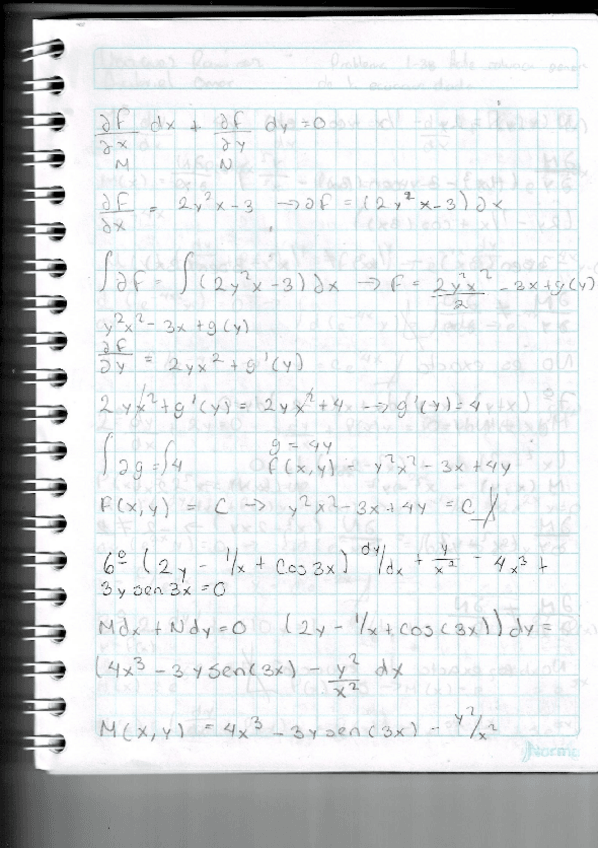 ∂F/∂x dx + ∂F/∂y dy = 0
M N
∂F/∂x = 2y²x-3 → ∂F = (2y²x-3)∂x
∫∂F = ∫(2y²x-3)∂x → F = 2y²x²/2 - 3x+g(y)
y²x² - 3x + g(y)
∂F/∂y = 2yx² + g'(y)
2yx² + g'(y) = 2yx² + 4 → g'(y) = 4
∫∂g = ∫4 g = 4y
f(x,y) = y²x² - 3x + 4y
F(x,y) = C → y²x² - 3x + 4y = C //
6º (2y - 1/x + Cos 3x) dy/dx + y/x² - 4x³ +
3y sen 3x = 0
Mdx + Ndy = 0 (2y - 1/x + cos(3x)) dy =
(4x³ - 3y sen(3x) - y²/x² dx
M(x,y) = 4x³ - 3y sen(3x) - y²/x²
Norma